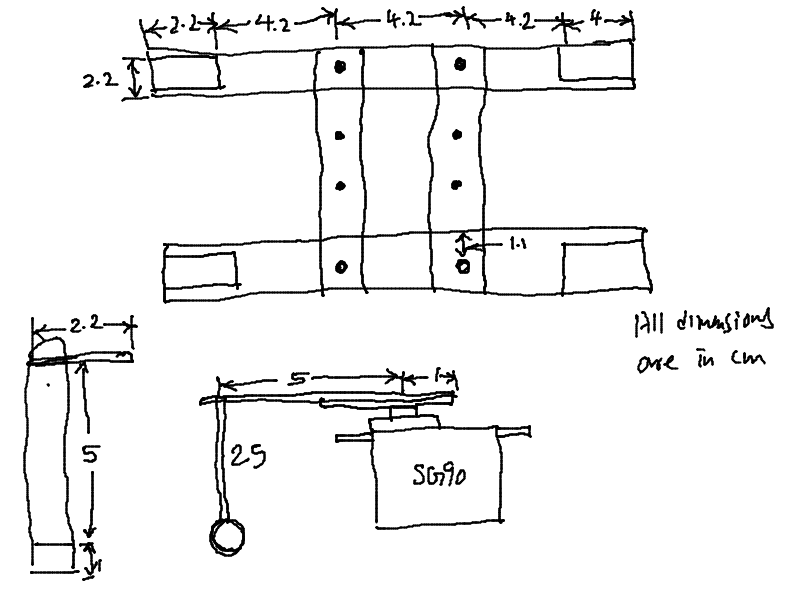 2.2 4.2 4.2 4.2 4
2.2
1.1
All dimensions
are in cm
2.2
5 1
5
25
SG90
1